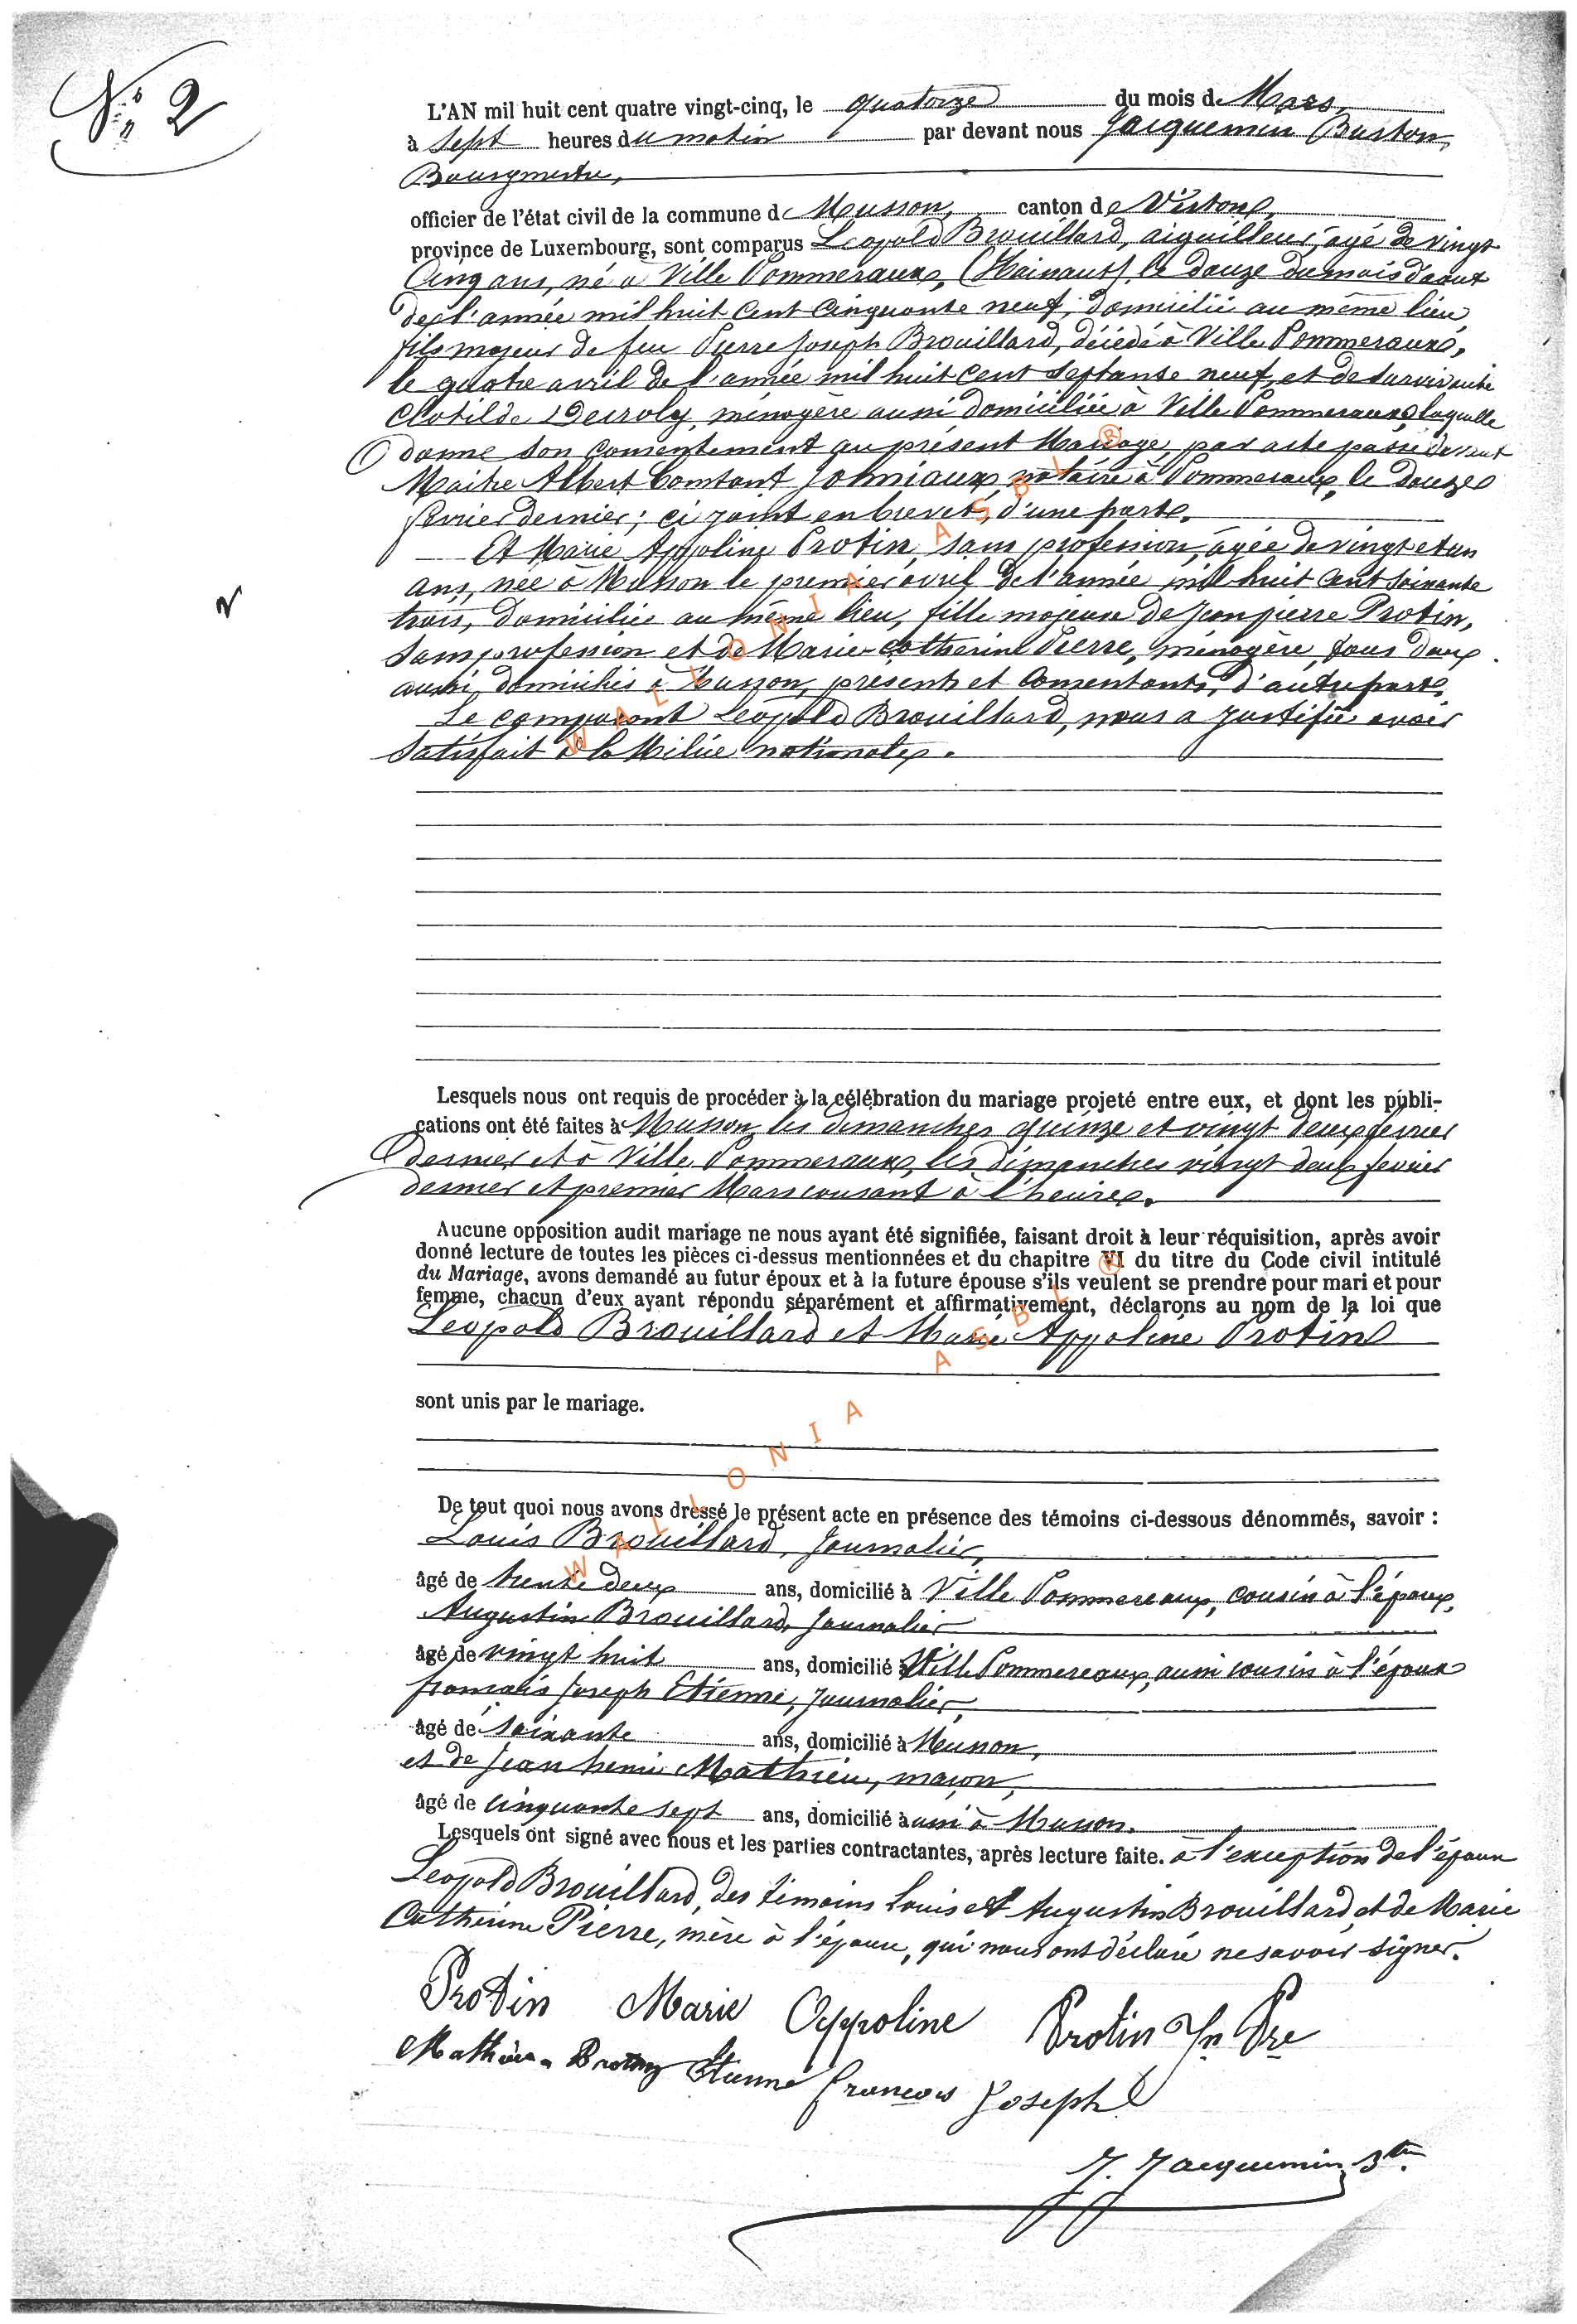 N° 2
L'AN mil huit cent quatre vingt-cinq, le quatorze du mois de Mars,
à sept heures du matin par devant nous Jacquemin Buston,
Bourgmestre,
officier de l'état civil de la commune de Musson, canton de Virton,
province de Luxembourg, sont comparus Léopold Brouillard, aiguilleur, agé de vingt
Cinq ans, né à Ville Pommeraux, (Hainaut) le douze du mois d'aout
de l'année mil huit cent cinquante neuf, domicilié au même lieu
fils majeur de feu Pierre Joseph Brouillard, décédé à Ville Pommeraux,
le quatre avril de l'année mil huit cent septante neuf, et de survivante
Clotilde, ménagère aussi domiciliée à Ville Pommeraux, laquelle
donne son consentement au présent Mariage, par acte passé devant
Maitre Albert Constant Johniaux, notaire à Pommeraux, le douze
février dernier; ci joint en brevet, d'une part.
Et Marie Appoline Protin, sans profession, agée de vingt et un
ans, née à Musson le premier avril de l'année mil huit cent soixante
trois, domiciliée au même lieu, fille majeure de Jean pierre Protin,
sans profession et de Marie-catherine Pierre, ménagère, tous deux
aussi domiciliés à Musson, présents et consentants, d'autre part.
Le comparant Léopold Brouillard, nous a justifié avoir
satisfait à la Milice nationale.
Lesquels nous ont requis de procéder à la célébration du mariage projeté entre eux, et dont les publi-
cations ont été faites à Musson, les dimanches quinze et vingt deux fevrier
dernier et à Ville Pommeraux, les dimanches vingt deux fevrier
dernier et premier Mars courant à l'heure.
Aucune opposition audit mariage ne nous ayant été signifiée, faisant droit à leur réquisition, après avoir
donné lecture de toutes les pièces ci-dessus mentionnées et du chapitre VI du titre du Code civil intitulé
du Mariage, avons demandé au futur époux et à la future épouse s'ils veulent se prendre pour mari et pour
femme, chacun d'eux ayant répondu séparément et affirmativement, déclarons au nom de la loi que
Léopold Brouillard et Marie Appoline Protin
sont unis par le mariage.
De tout quoi nous avons dressé le présent acte en présence des témoins ci-dessous dénommés, savoir :
Louis Brouillard, Journalier,
âgé de trente deux ans, domicilié à Ville Pommereaux, cousin à l'époux,
Augustin Brouillard, Journalier
âgé de vingt huit ans, domicilié à Ville Pommereaux, aussi cousin à l'époux
francois Joseph Etienne, Journalier,
âgé de soixante ans, domicilié à Musson,
et de Jean henri Mathieu, maçon,
âgé de cinquante sept ans, domicilié à aussi à Musson.
Lesquels ont signé avec nous et les parties contractantes, après lecture faite. à l'exception de l'époux
Léopold Brouillard, des témoins Louis et Augustin Brouillard, et de Marie
Catherine Pierre, mère à l'épouse, qui nous ont déclaré ne savoir signer.
Protin Marie Appoline Protin Jn Pre
Mathieu Etienne françois Joseph
J. Jacquemin Btre.
WALLONIA ASBL ®
WALLONIA ASBL ®